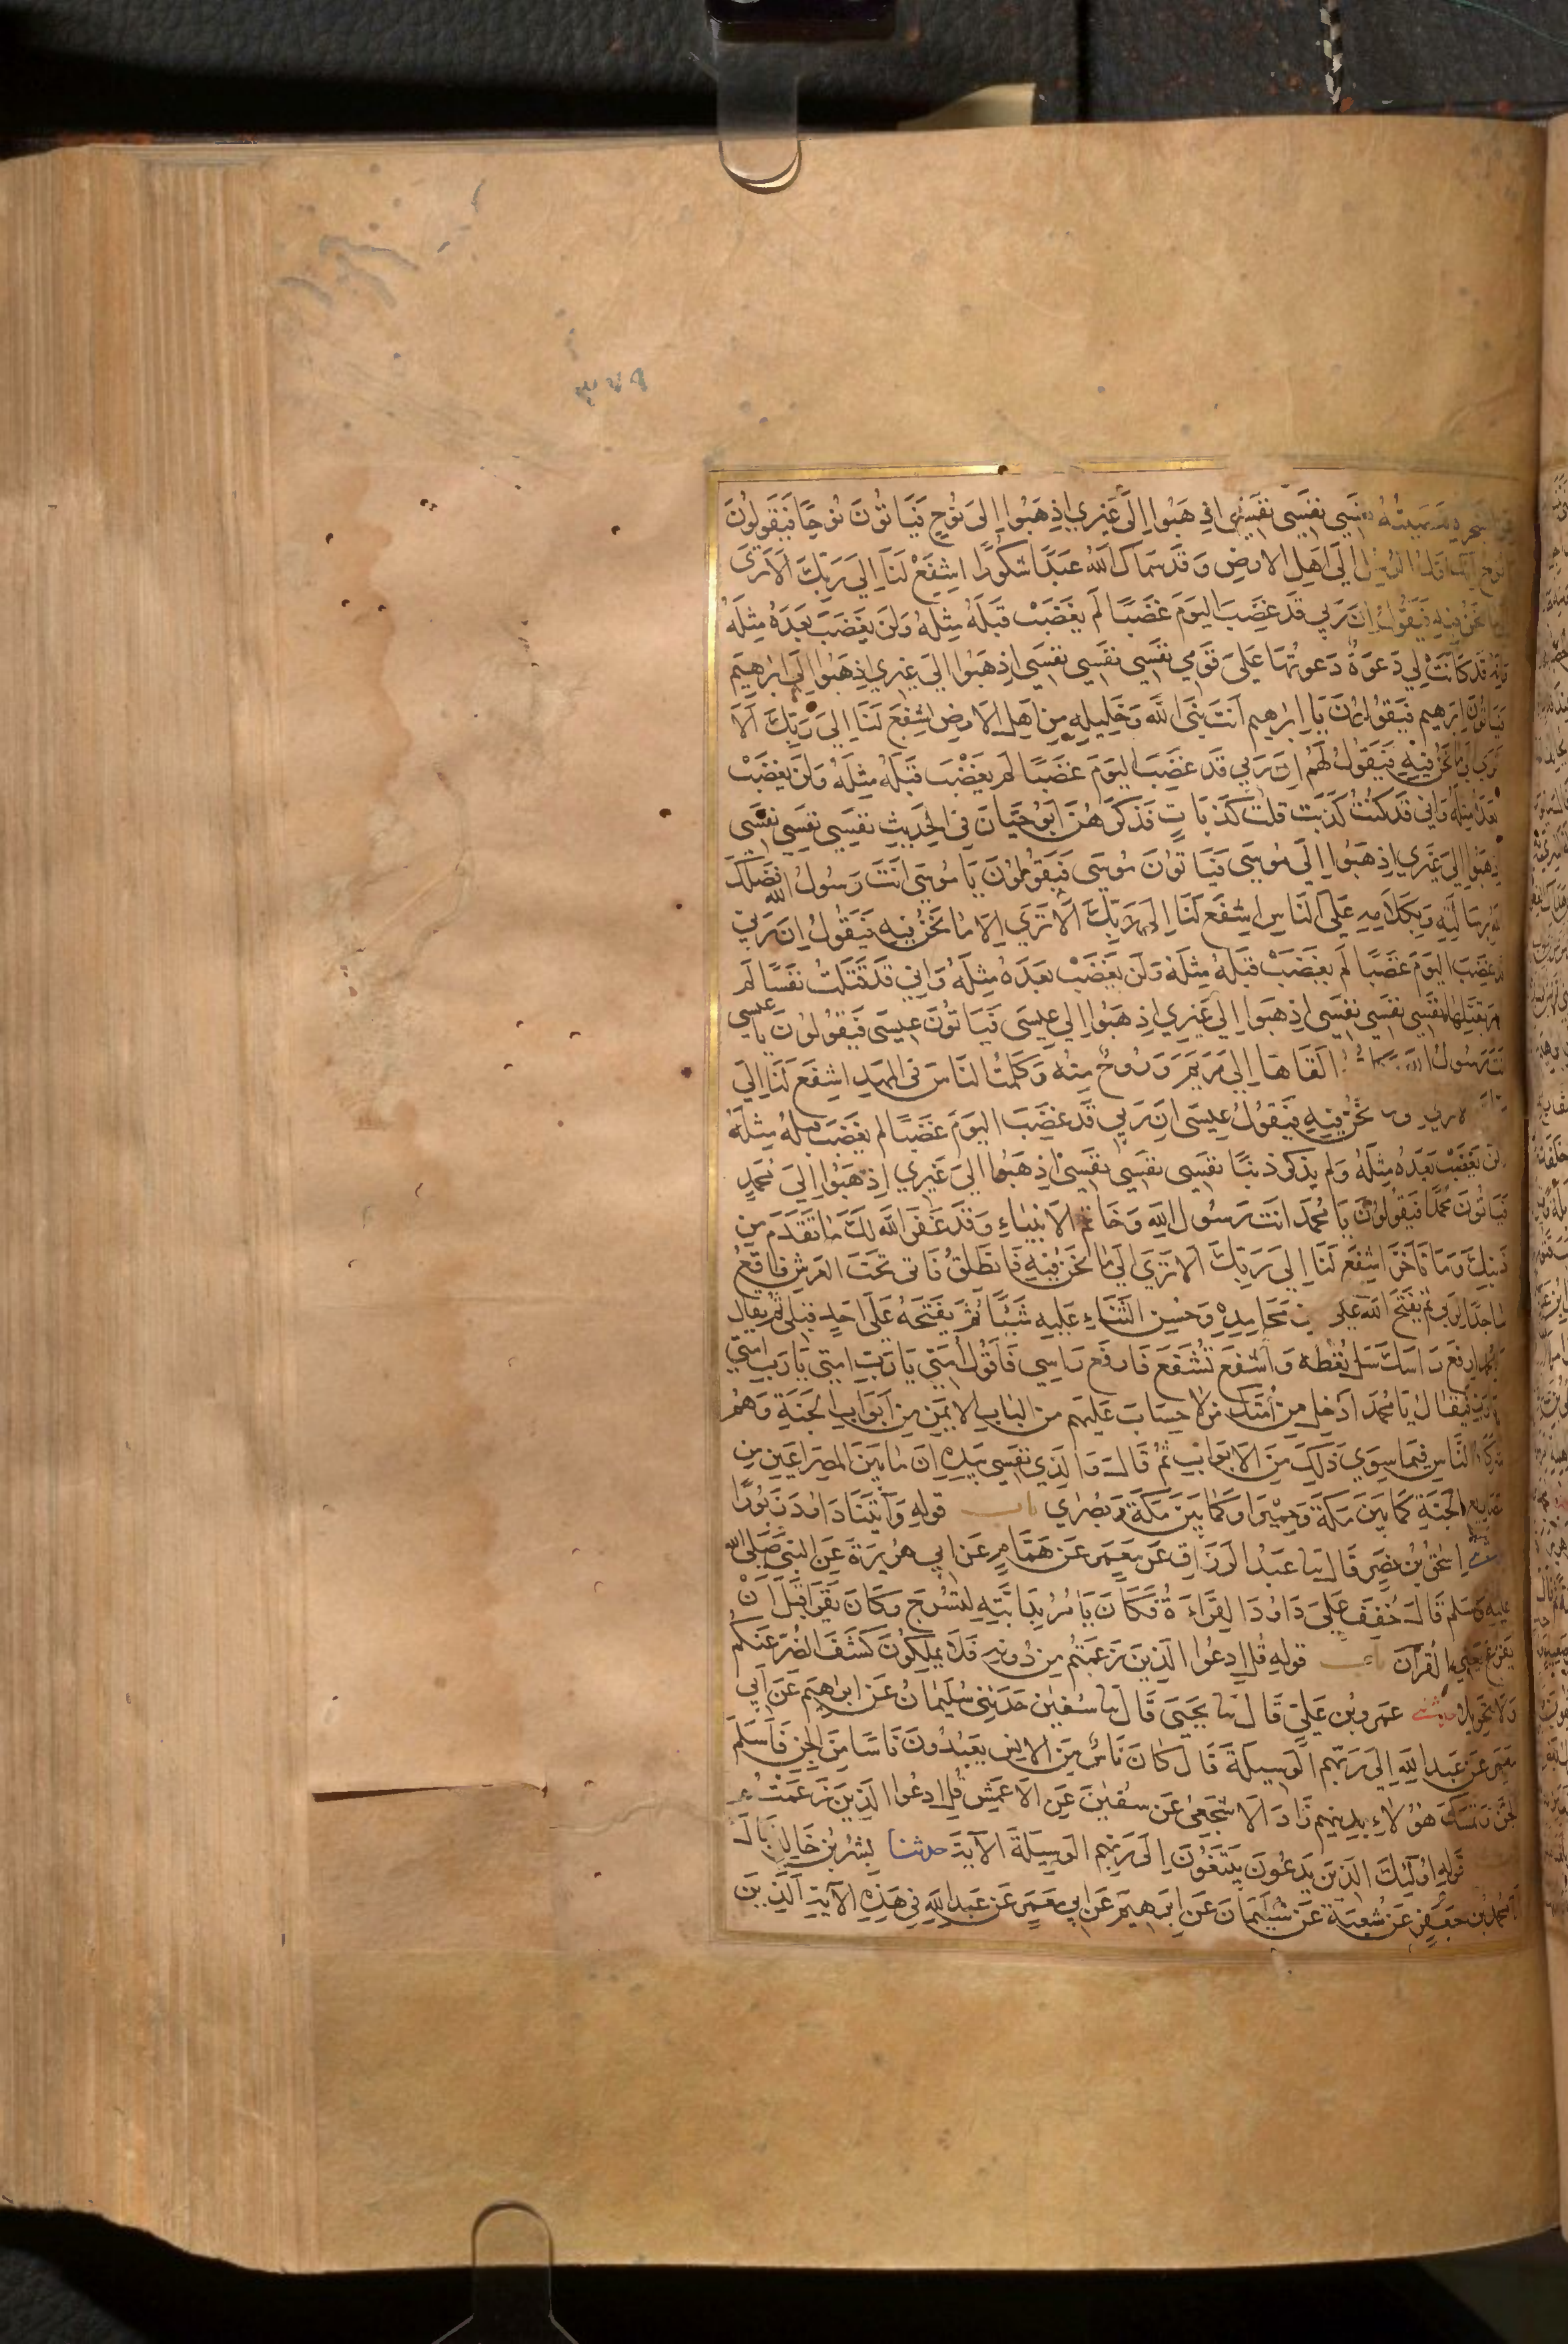 ٣٧٩
الشجرة فعصيته نفسي نفسي نفسي اذهبوا إلى غيري اذهبوا إلى نوح فيأتون نوحا فيقولون
يا نوح إنك أول الرسل إلى أهل الأرض وقد سماك الله عبدا شكورا اشفع لنا إلى ربك ألا ترى
ما نحن فيه فيقول إن ربي قد غضب اليوم غضبا لم يغضب قبله مثله ولن يغضب بعده مثله
وإنه قد كانت لي دعوة دعوتها على قومي نفسي نفسي نفسي اذهبوا إلى غيري اذهبوا إلى ابرهيم
فيأتون إبرهيم فيقولون يا إبرهيم أنت نبي الله وخليله من أهل الأرض اشفع لنا إلى ربك ألا
ترى إلى ما نحن فيه فيقول لهم إن ربي قد غضب اليوم غضبا لم يغضب قبله مثله ولن يغضب
بعده مثله وإني قد كنت كذبت ثلث كذبات فذكرهن أبو حيان في الحديث نفسي نفسي نفسي
اذهبوا إلى غيري اذهبوا إلى موسى فيأتون موسى فيقولون يا موسى أنت رسول الله فضلك
الله برسالته وبكلامه على الناس اشفع لنا إلى ربك ألا ترى إلى ما نحن فيه فيقول إن ربي
قد غضب اليوم غضبا لم يغضب قبله مثله ولن يغضب بعده مثله وإني قد قتلت نفسا لم
أومر بقتلها نفسي نفسي نفسي اذهبوا إلى غيري اذهبوا إلى عيسى فيأتون عيسى فيقولون يا عيسى
أنت رسول الله ألقاها إلى مريم وروح منه وكلمت الناس في المهد اشفع لنا إلى
نحن فيه فيقول عيسى إن ربي قد غضب اليوم غضبا لم يغضب قبله مثله
ولن يغضب بعده مثله ولم يذكر ذنبا نفسي نفسي نفسي اذهبوا إلى غيري اذهبوا إلى محمد
فيأتون محمدا فيقولون يا محمد أنت رسول الله وخاتم الأنبياء وقد غفر الله لك ما تقدم من
ذنبك وما تأخر اشفع لنا إلى ربك ألا ترى إلى ما نحن فيه فأنطلق فآتي تحت العرش فأقع
ساجدا لربي ثم يفتح الله علي من محامده وحسن الثناء عليه شيئا لم يفتحه على أحد قبلي ثم يقال
يا محمد ارفع رأسك سل تعطه واشفع تشفع فارفع رأسي فأقول أمتي يا رب امتي يا رب امتي
يا رب فيقال يا محمد أدخل من أمتك من لا حساب عليهم من الباب الأيمن من أبواب الجنة وهم
شركاء الناس فيما سوى ذلك من الأبواب ثم قال والذي نفسي بيده إن ما بين المصراعين من
مصاريع الجنة كما بين مكة وحمير أو كما بين مكة وبصرى باب قوله وآتينا داود زبورا
حدثني إسحق بن نصر قال ثنا عبد الرزاق عن معمر عن همام عن أبي هريرة عن النبي صلى الله
عليه وسلم قال خفف على داود القراءة فكان يأمر بدابته لتسرج وكان يقرأ قبل أن
يفرغ يعني القرآن باب قوله قل ادعوا الذين زعمتم من دونه فلا يملكون كشف الضر عنكم
ولا تحويلا حدثني عمرو بن علي قال ثنا يحيى قال ثنا سفين حدثني سليمان عن إبرهيم عن أبي
معمر عن عبد الله إلى ربهم الوسيلة قال كان ناس من الإنس يعبدون ناسا من الجن فأسلم
الجن وتمسك هؤلاء بدينهم زاد الأشجعي عن سفين عن الأعمش قل ادعوا الذين زعمتم
قوله أولئك الذين يدعون يبتغون إلى ربهم الوسيلة الآية حدثنا بشر بن خالد قال
محمد بن جعفر عن شعبة عن سليمان عن إبرهيم عن أبي معمر عن عبد الله في هذه الآية الذين